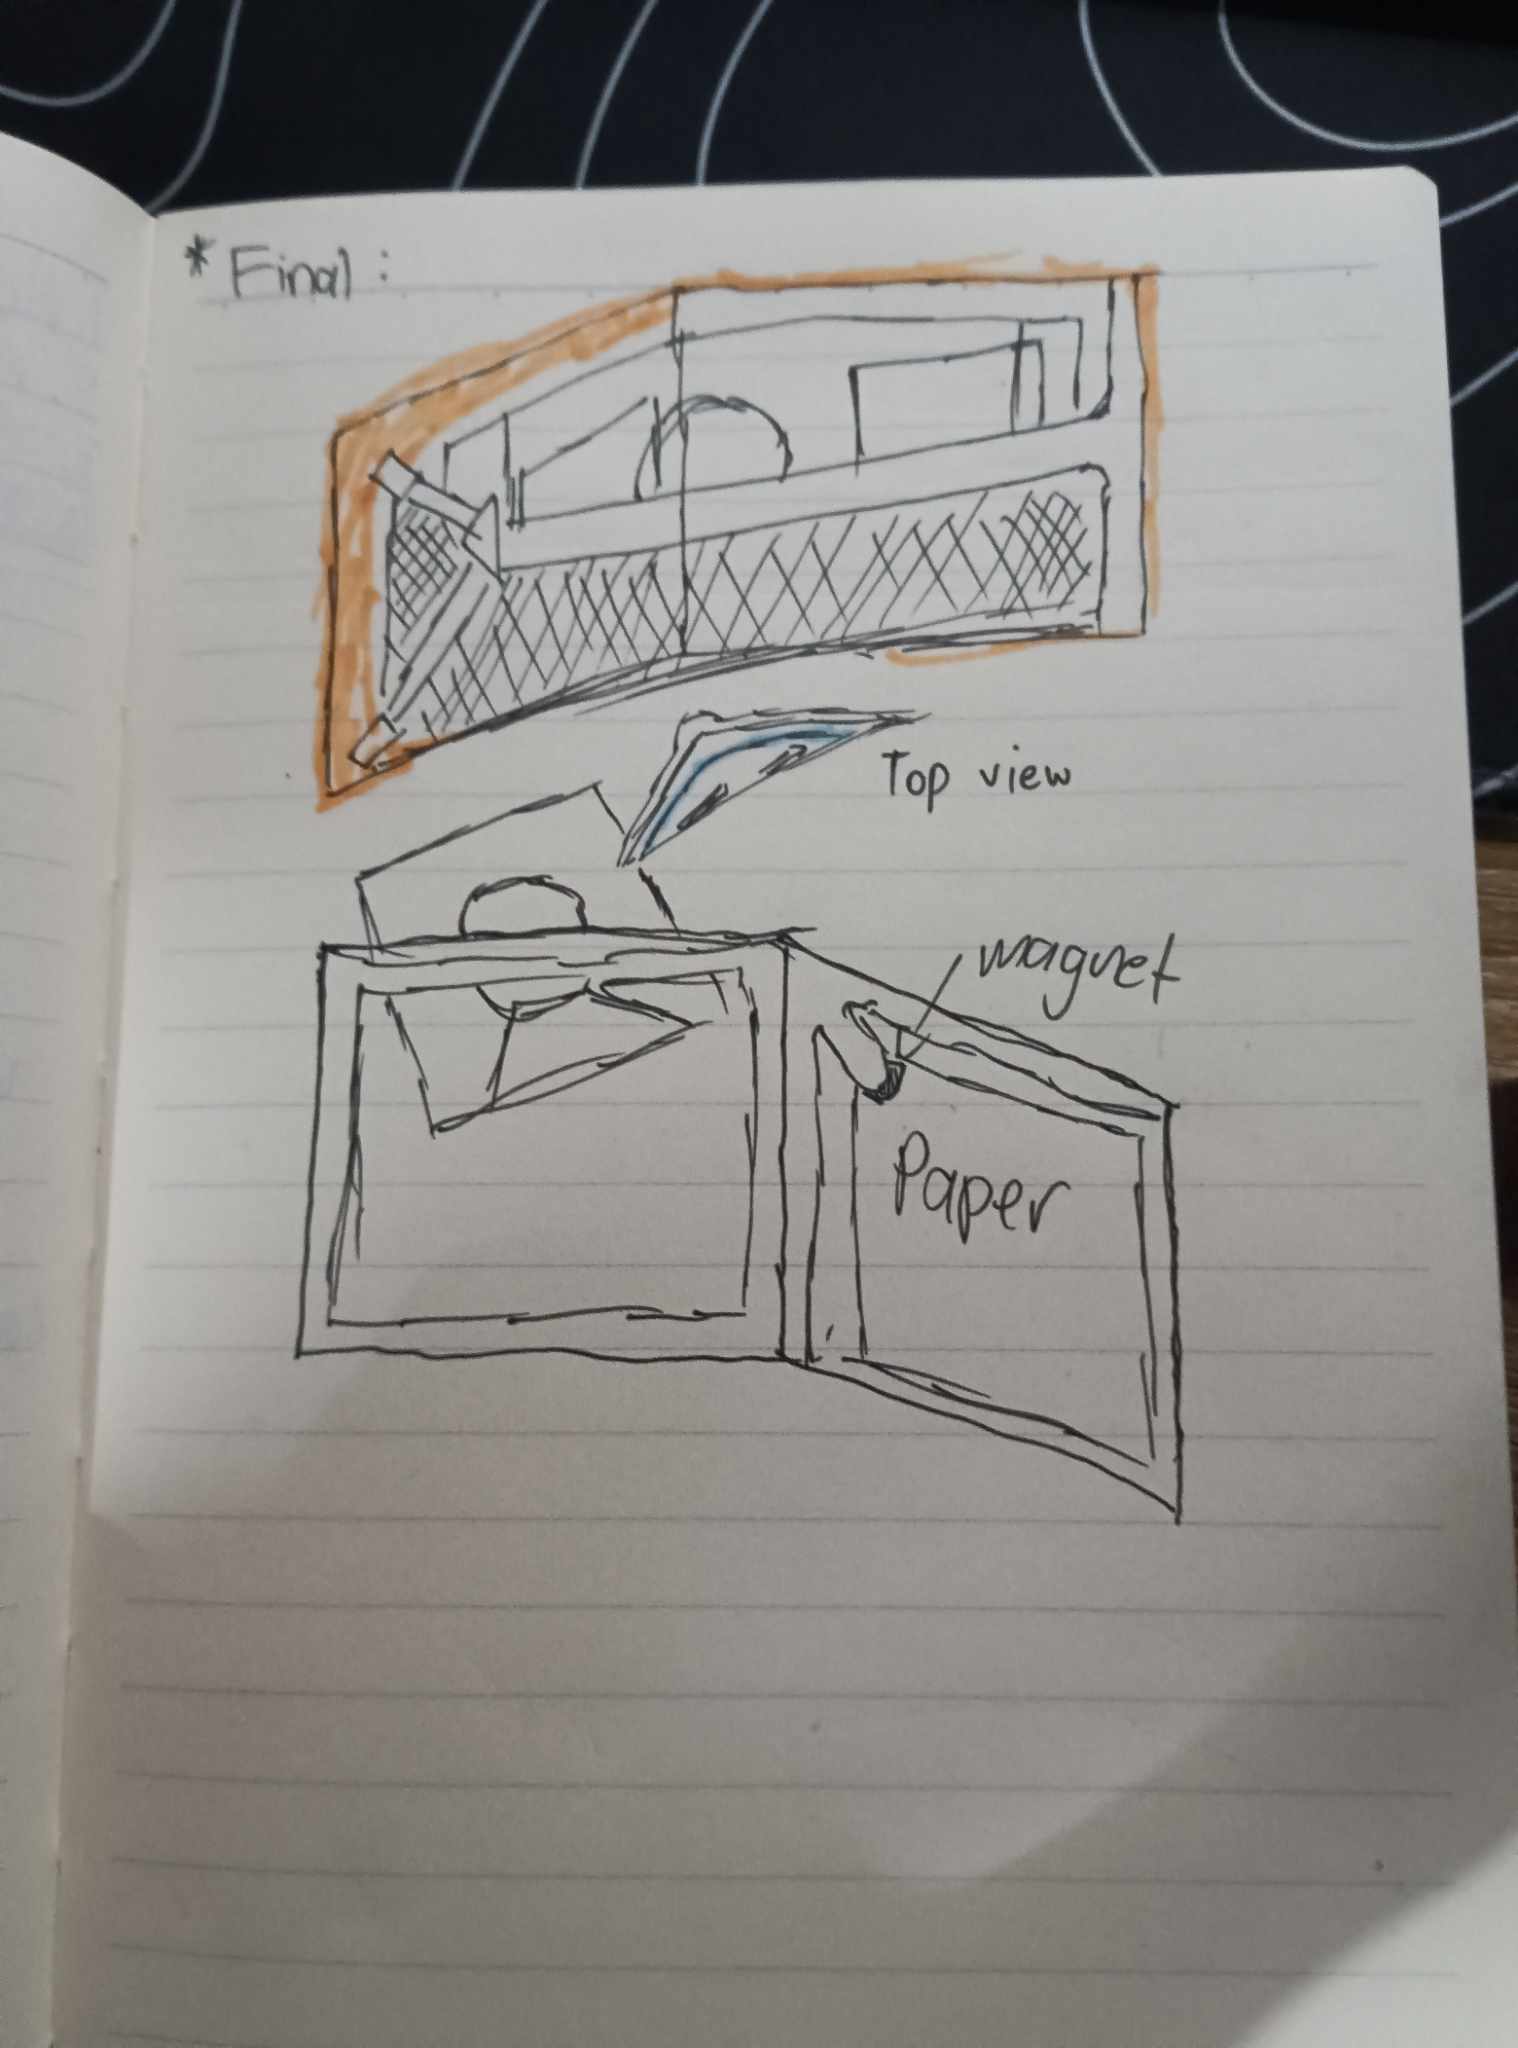 * Final :
Top view
magnet
Paper